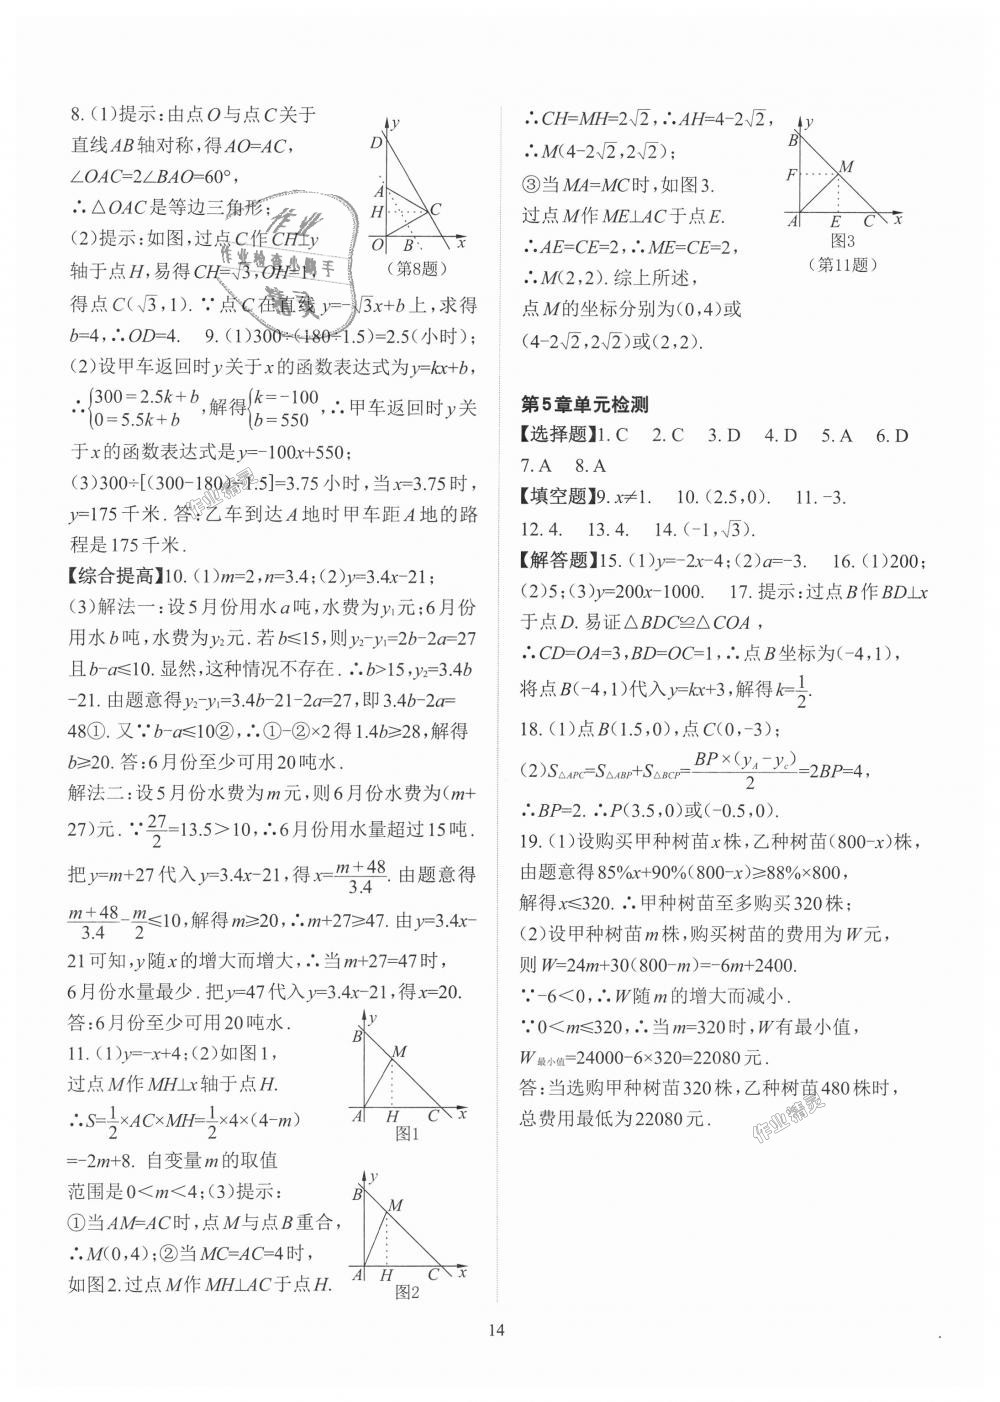 8. (1)提示:由点O与点C关于
直线AB轴对称,得AO=AC,
∠OAC=2∠BAO=60°,
∴△OAC是等边三角形;
(2)提示:如图,过点C作CH⊥y
轴于点H,易得CH=√3,OH=1,
得点C(√3,1). ∵点C在直线y=-√3x+b上,求得
b=4,∴OD=4. 9. (1)300÷(180÷1.5)=2.5(小时);
(2)设甲车返回时y关于x的函数表达式为y=kx+b,
∴{300=2.5k+b 0=5.5k+b,解得{k=-100 b=550,∴甲车返回时y关
于x的函数表达式是y=-100x+550;
(3)300÷[(300-180)÷1.5]=3.75小时,当x=3.75时,
y=175千米. 答:乙车到达A地时甲车距A地的路
程是175千米.
【综合提高】10. (1)m=2,n=3.4;(2)y=3.4x-21;
(3)解法一:设5月份用水a吨,水费为y₁元;6月份
用水b吨,水费为y₂元. 若b≤15,则y₂-y₁=2b-2a=27
且b-a≤10. 显然,这种情况不存在. ∴b>15,y₂=3.4b
-21. 由题意得y₂-y₁=3.4b-21-2a=27,即3.4b-2a=
48①. 又∵b-a≤10②,∴①-②×2得1.4b≥28,解得
b≥20. 答:6月份至少可用20吨水.
解法二:设5月份水费为m元,则6月份水费为(m+
27)元. ∵27/2=13.5>10,∴6月份用水量超过15吨.
把y=m+27代入y=3.4x-21,得x=(m+48)/3.4. 由题意得
(m+48)/3.4-m/2≤10,解得m≥20,∴m+27≥47. 由y=3.4x-
21可知,y随x的增大而增大,∴当m+27=47时,
6月份水量最少. 把y=47代入y=3.4x-21,得x=20.
答:6月份至少可用20吨水.
11. (1)y=-x+4;(2)如图1,
过点M作MH⊥x轴于点H.
∴S=1/2×AC×MH=1/2×4×(4-m)
=-2m+8. 自变量m的取值
范围是0<m<4;(3)提示:
①当AM=AC时,点M与点B重合,
∴M(0,4);②当MC=AC=4时,
如图2.过点M作MH⊥AC于点H.
y
D
A
H
C
O
B
x
(第8题)
y
B
M
A
H
C
x
图1
y
B
M
A
H
C
x
图2
∴CH=MH=2√2,∴AH=4-2√2,
∴M(4-2√2,2√2);
③当MA=MC时,如图3.
过点M作ME⊥AC于点E.
∴AE=CE=2,∴ME=CE=2,
∴M(2,2). 综上所述,
点M的坐标分别为(0,4)或
(4-2√2,2√2)或(2,2).
y
B
F
M
A
E
C
x
图3
(第11题)
第5章单元检测
【选择题】1. C 2. C 3. D 4. D 5. A 6. D
7. A 8. A
【填空题】9. x≠1. 10. (2.5,0). 11. -3.
12. 4. 13. 4. 14. (-1,√3).
【解答题】15. (1)y=-2x-4;(2)a=-3. 16. (1)200;
(2)5;(3)y=200x-1000. 17. 提示:过点B作BD⊥x
于点D. 易证△BDC≌△COA,
∴CD=OA=3,BD=OC=1,∴点B坐标为(-4,1),
将点B(-4,1)代入y=kx+3,解得k=1/2.
18. (1)点B(1.5,0),点C(0,-3);
(2)S△APC=S△ABP+S△BCP=BP×(yA-yc)/2=2BP=4,
∴BP=2. ∴P(3.5,0)或(-0.5,0).
19. (1)设购买甲种树苗x株,乙种树苗(800-x)株,
由题意得85%x+90%(800-x)≥88%×800,
解得x≤320. ∴甲种树苗至多购买320株;
(2)设甲种树苗m株,购买树苗的费用为W元,
则W=24m+30(800-m)=-6m+2400.
∵-6<0,∴W随m的增大而减小.
∵0<m≤320,∴当m=320时,W有最小值,
W最小值=24000-6×320=22080元.
答:当选购甲种树苗320株,乙种树苗480株时,
总费用最低为22080元.
作业
作业检查小助手
精灵
作业精灵
作业精灵
14